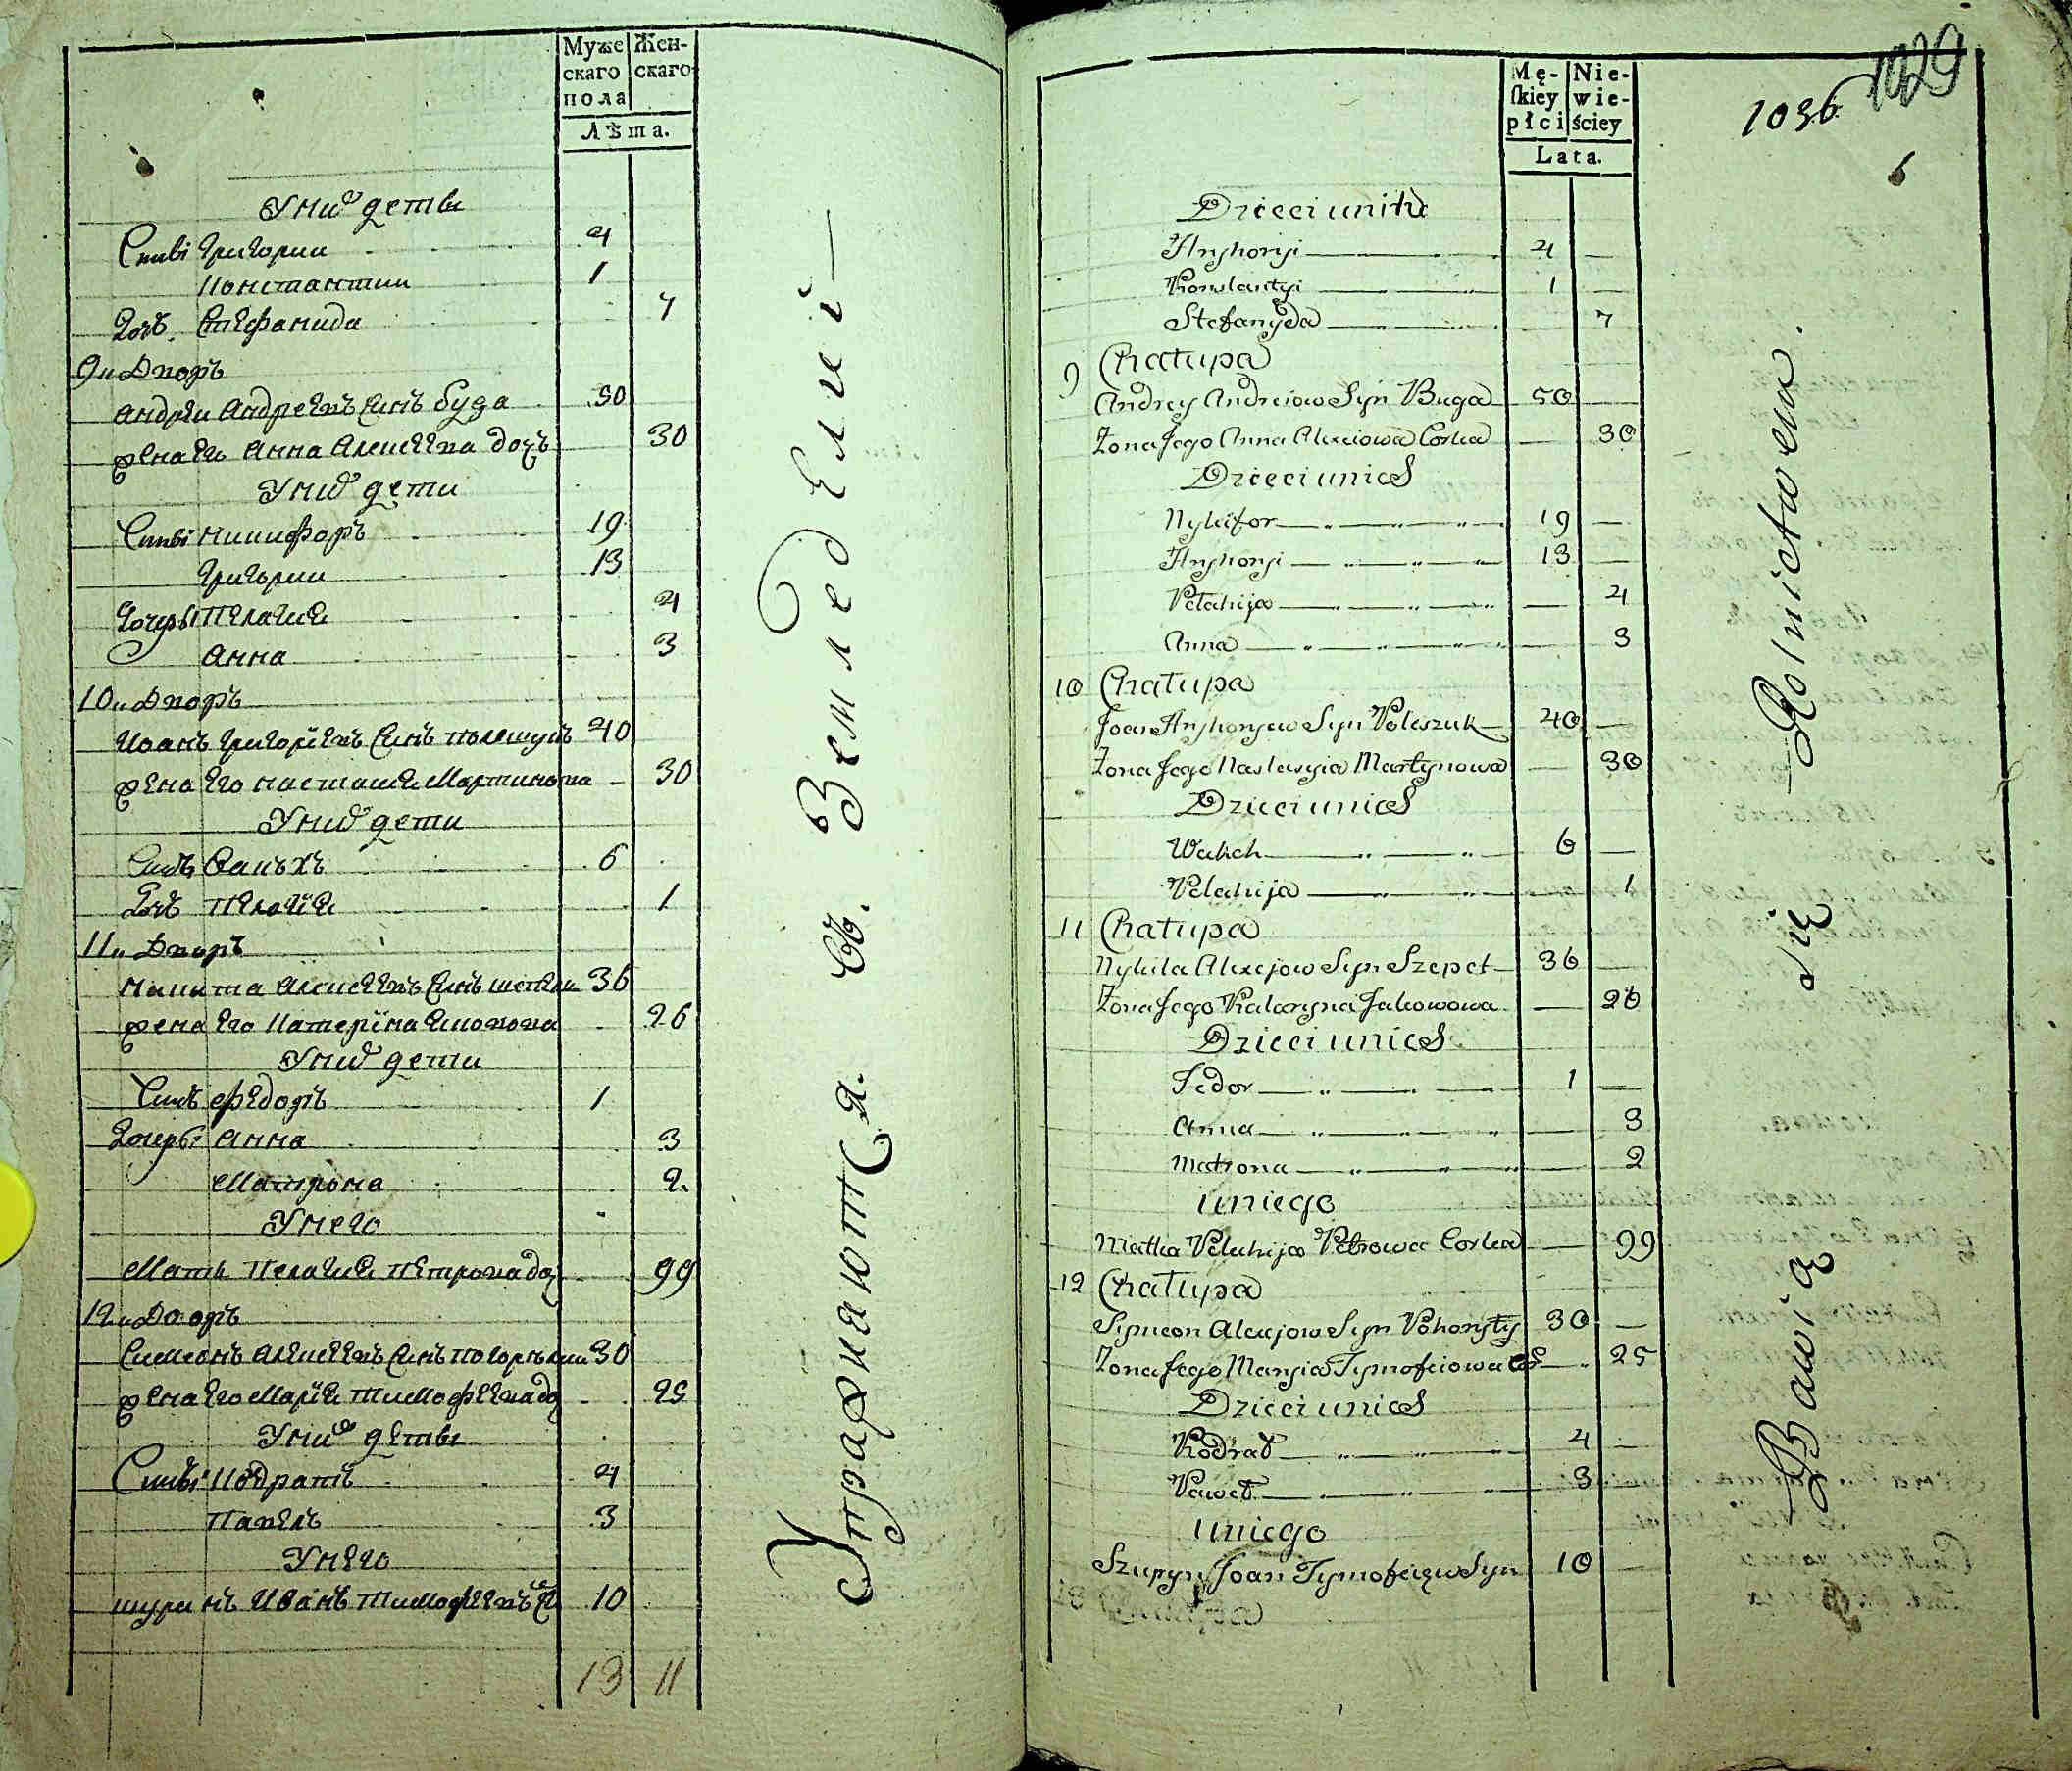 Муже Жен-
скаго скаго
пола
Лѣта.
У нихъ дети
Сыны Григории 4
Константин 1
Дочь Стефанида 7
9и Дворъ
Андреи Андреевъ Сынъ Буга 50
Жена Его Анна Алексеева дочъ 30
У них дети
Сыны Никифоръ 19
Григории 13
Дочеры Пелагия 4
Анна 3
10и Дворъ
Иоанъ Григориевъ Сынъ Полещукъ 40
Жена Его Настасия Мартинова 30
У них дети
Сынъ 6
Дочь Пелагия 1
11и Дворъ
Никита Алексеевъ Сынъ 36
Жена Его Катерина 26
У них дети
Сынъ Федоръ 1
Дочерь Анна 3
Матрона 2.
У него
Мать Пелагия Петрова до 99
12и Дворъ
Симеонъ Алексеевъ Сынъ 30
Жена Его Мария Тимофеева до 25
У них дети
Сыны Кодратъ 4
Павелъ 3
У него
шуринъ Иванъ Тимофеевъ С 10
13 11
УпражняютСя. Въ. Земледелий
1029
1036
Mę- Nie-
skiey wie-
płci ściey
Lata.
Dzieci unich
Hryhoryi 4
Konstantyi 1
Stefanyda 7
9 Chałupa
Andrey Andreiow Syn Buga 50
Zona Jego Anna Alexiowa Corka 30
Dzieci unich
Nykifor 19
Hryhoryi 13
Pelahija 4
Anna 3
10 Chałupa
Joan Hryhoryew Syn Poleszuk 40
Zona Jego Nastasyia Martynowa 30
Dzieci unich
6
Pelahija 1
11 Chałupa
Nykita Alexejow Syn Szepet 36
Zona Jego Kataryna Jakowowa 26
Dzieci unich
Fedor 1
Anna 3
Matrona 2
uniego
Matka Pelahija Petrowa Corka 99
12 Chałupa
Symeon Alexejow Syn Pohoryły 30
Zona Jego Maryia Tymofeiowa 25
Dzieci unich
Kodrat 4
Paweł 3
uniego
Szuryn Joan Tymofeiew Syn 10
Bawią się Rolnictwem.